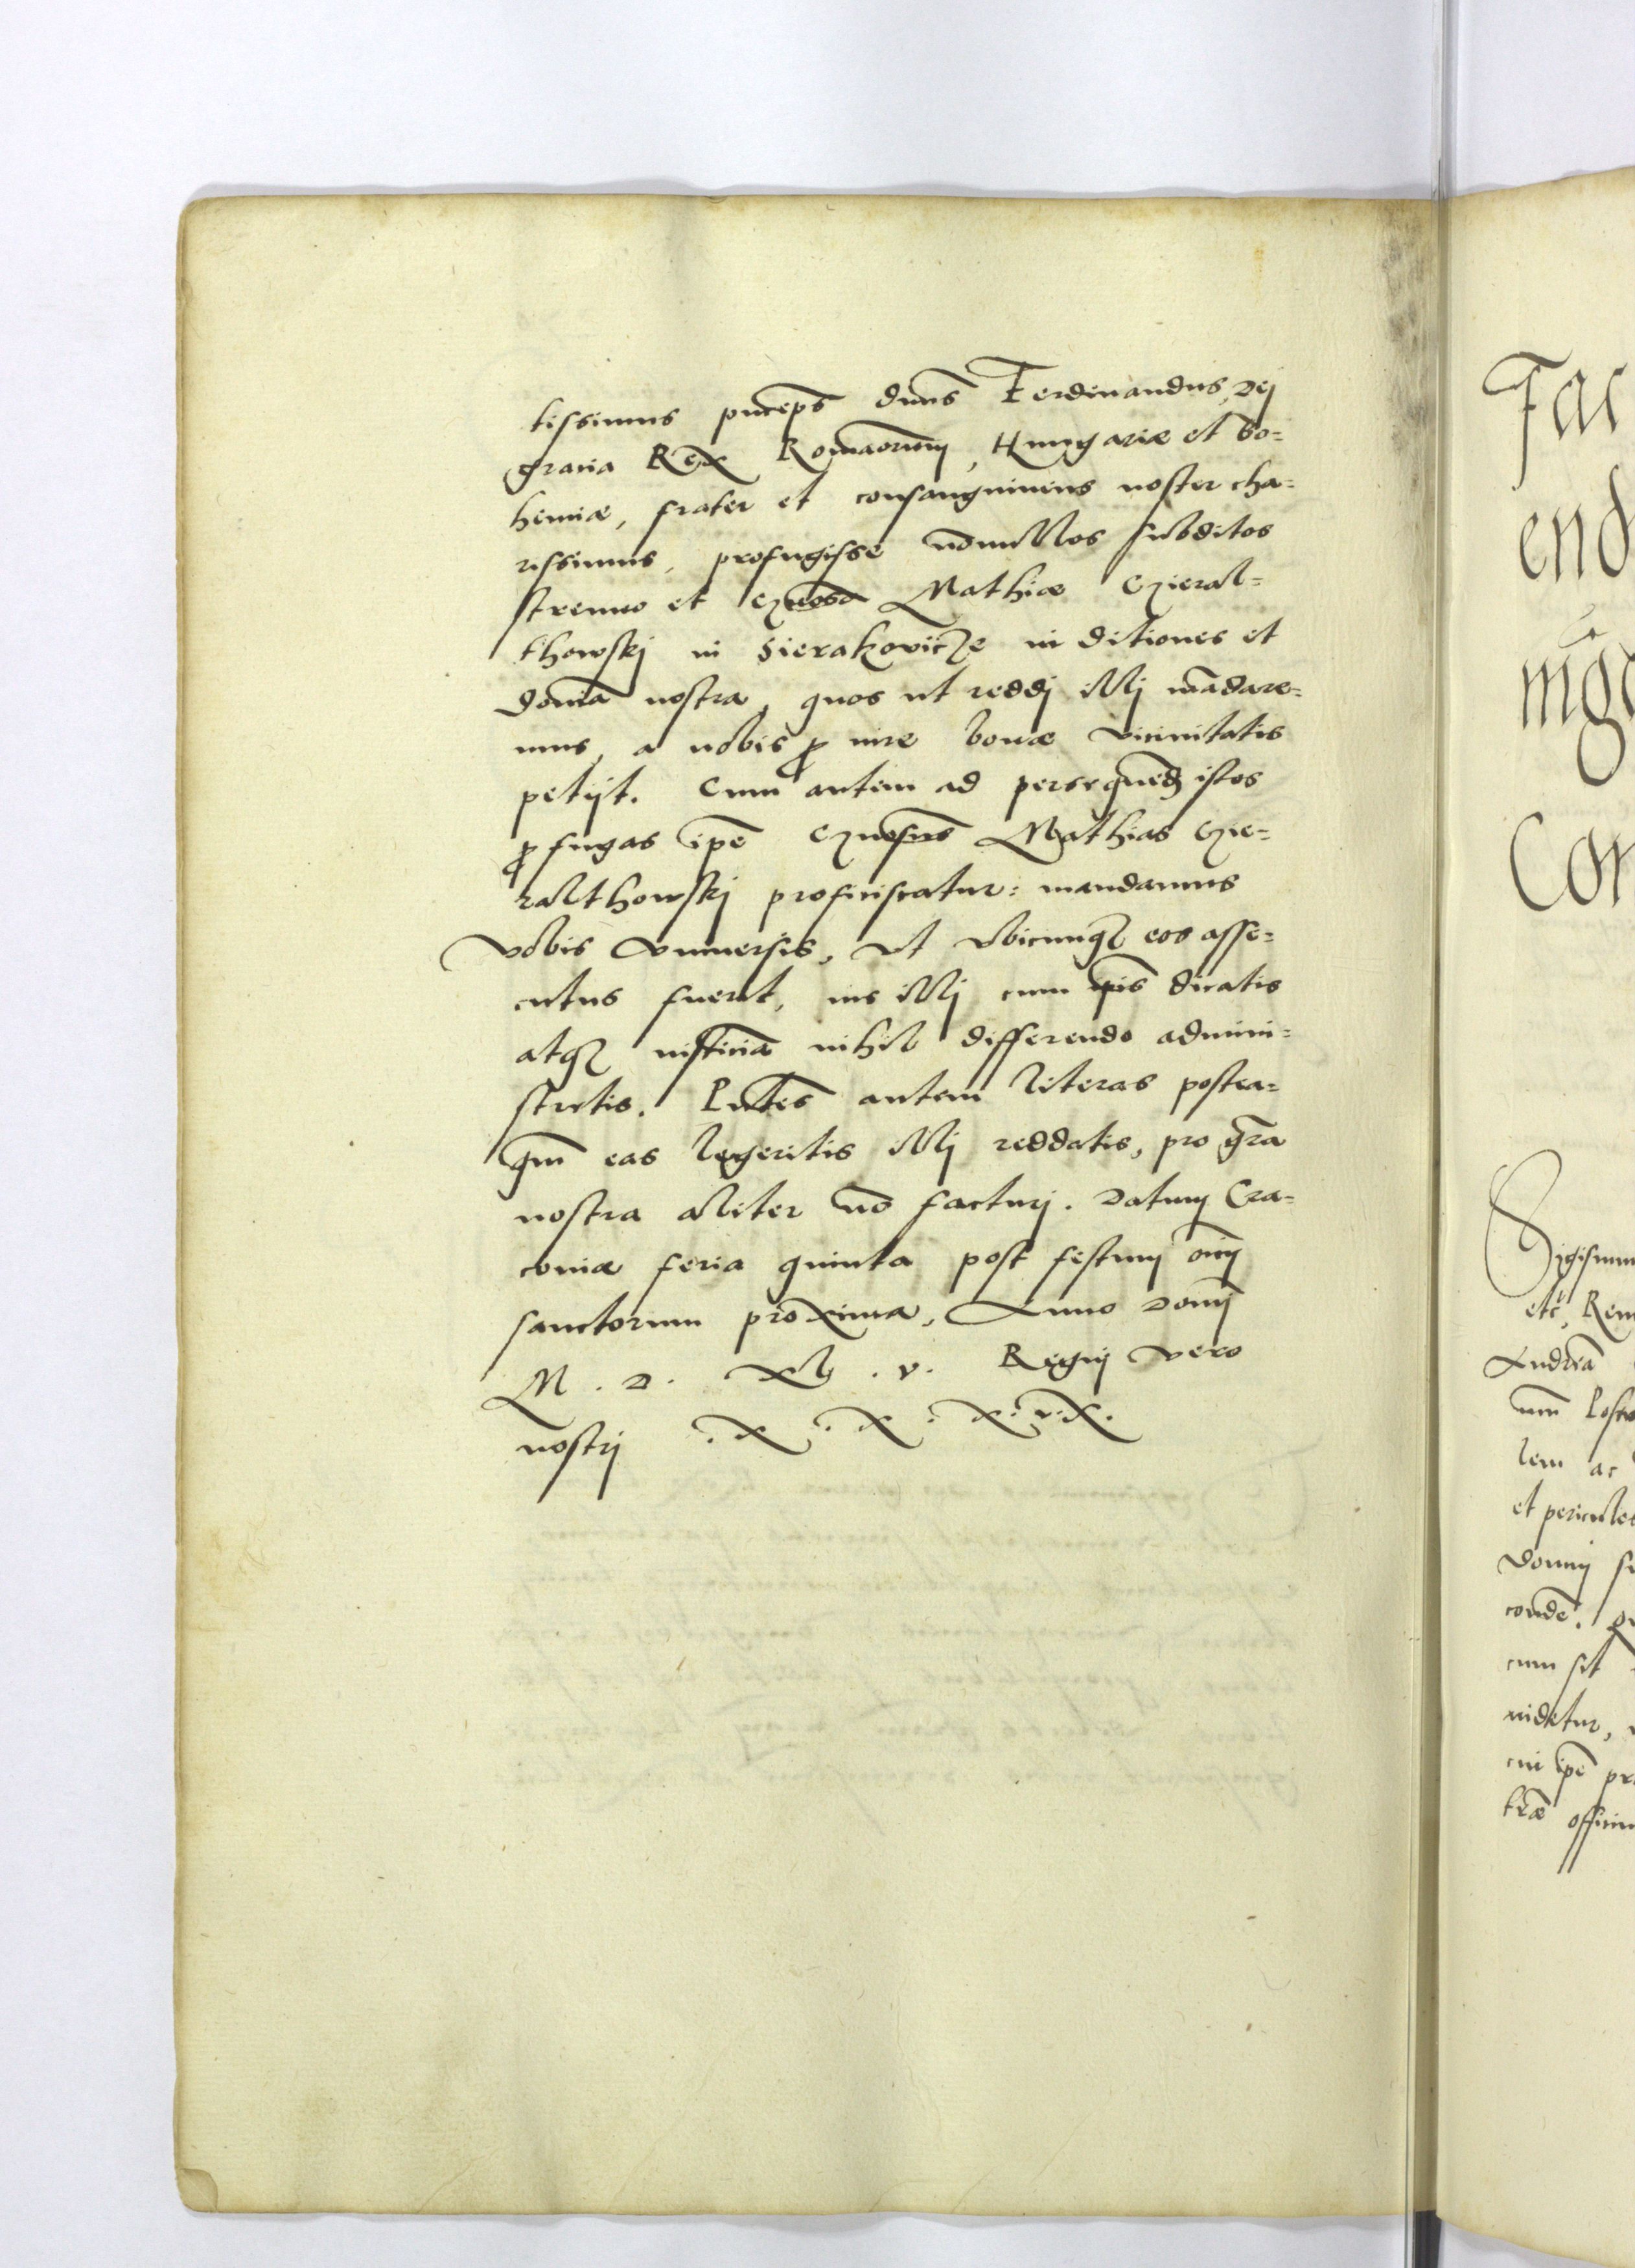 tissimus princeps dnus Ferdinandus, Dej
gratia Rex Romaorum, Hungariæ et Bo=
hemiæ, frater et consanguineus noster cha=
rissimus, profugisse nōnullos subditos
strenuo et Mathiæ Czieral=
thowskj in Sierakovicze in ditiones et
domīa nostra, quos ut reddj illj mādare=
mus, a nobis p iure bonæ vicinitatis
petijt. Cum autem ad istos
pfugas ipē Mathias Czie=
ralthowskj proficiscatur: mandamus
vobis vniuersis, vt vbicunqz eos asse=
cutus fuerit, ius illj cum ipis dicatis
atqz iusticiā nihil differendo admini=
stretis. Pntes autem literas postea=
qm eas legeritis illj reddatis, pro grā
nostra aliter nō facturj. Datum Cra=
coviæ feria quinta post festum oīm
sanctorum proxima, Anno Domj
M. D. XL. v. Regnj vero
nostrj . X . X . X. v. X.
Fac
end
mgc
Con
Sigismun
etc, Reu
Andreā
um
lem ac
et pericules
domīj su
condē.
cum sit
uidetur,
cui ipē pr
trǣ officiu